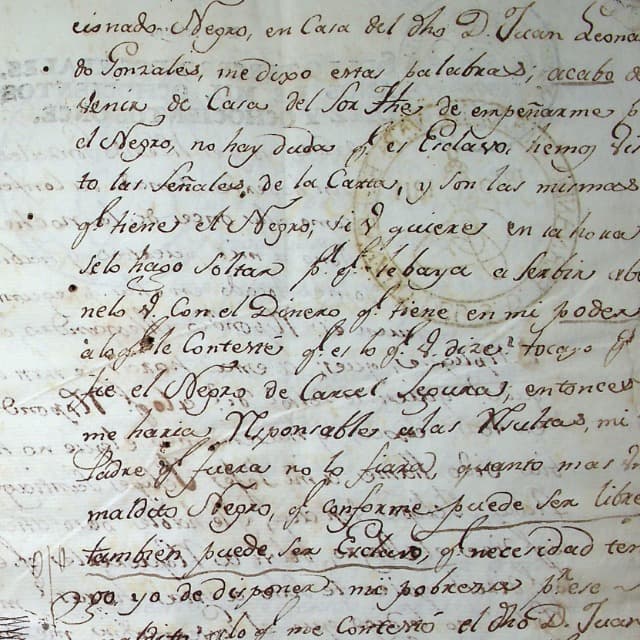 cionado Negro, en Casa del dho D. Juan Leona
do Gonzales, me dixo estas palabras, acabo de
venir de Casa del Sor The de empeñarme p
el Negro, no hay duda q.e es Esclavo, hemos vis
to, las Señales, de la Carta, y son las mismas
q.e tiene el Negro, si V. quiere en la hora
selo hago soltar p.a q.e le baya a serbir
nelo V. Con el Dinero q.e tiene en mi poder
a lo q.e le Contexté q.e es lo q.e V. dize tocayo
fie el Negro de Carcel Segura, entonces
me haria Responsable, a las Resultas, mi
Padre q.e fuera no lo fiara quanto mas
maldito Negro, q.e conforme puede ser libre
tambien puede, ser Esclavo, q.e necesidad ten
go yo de disponer mi pobreza p.r ese
q.e me Contexto el dho D. Juan